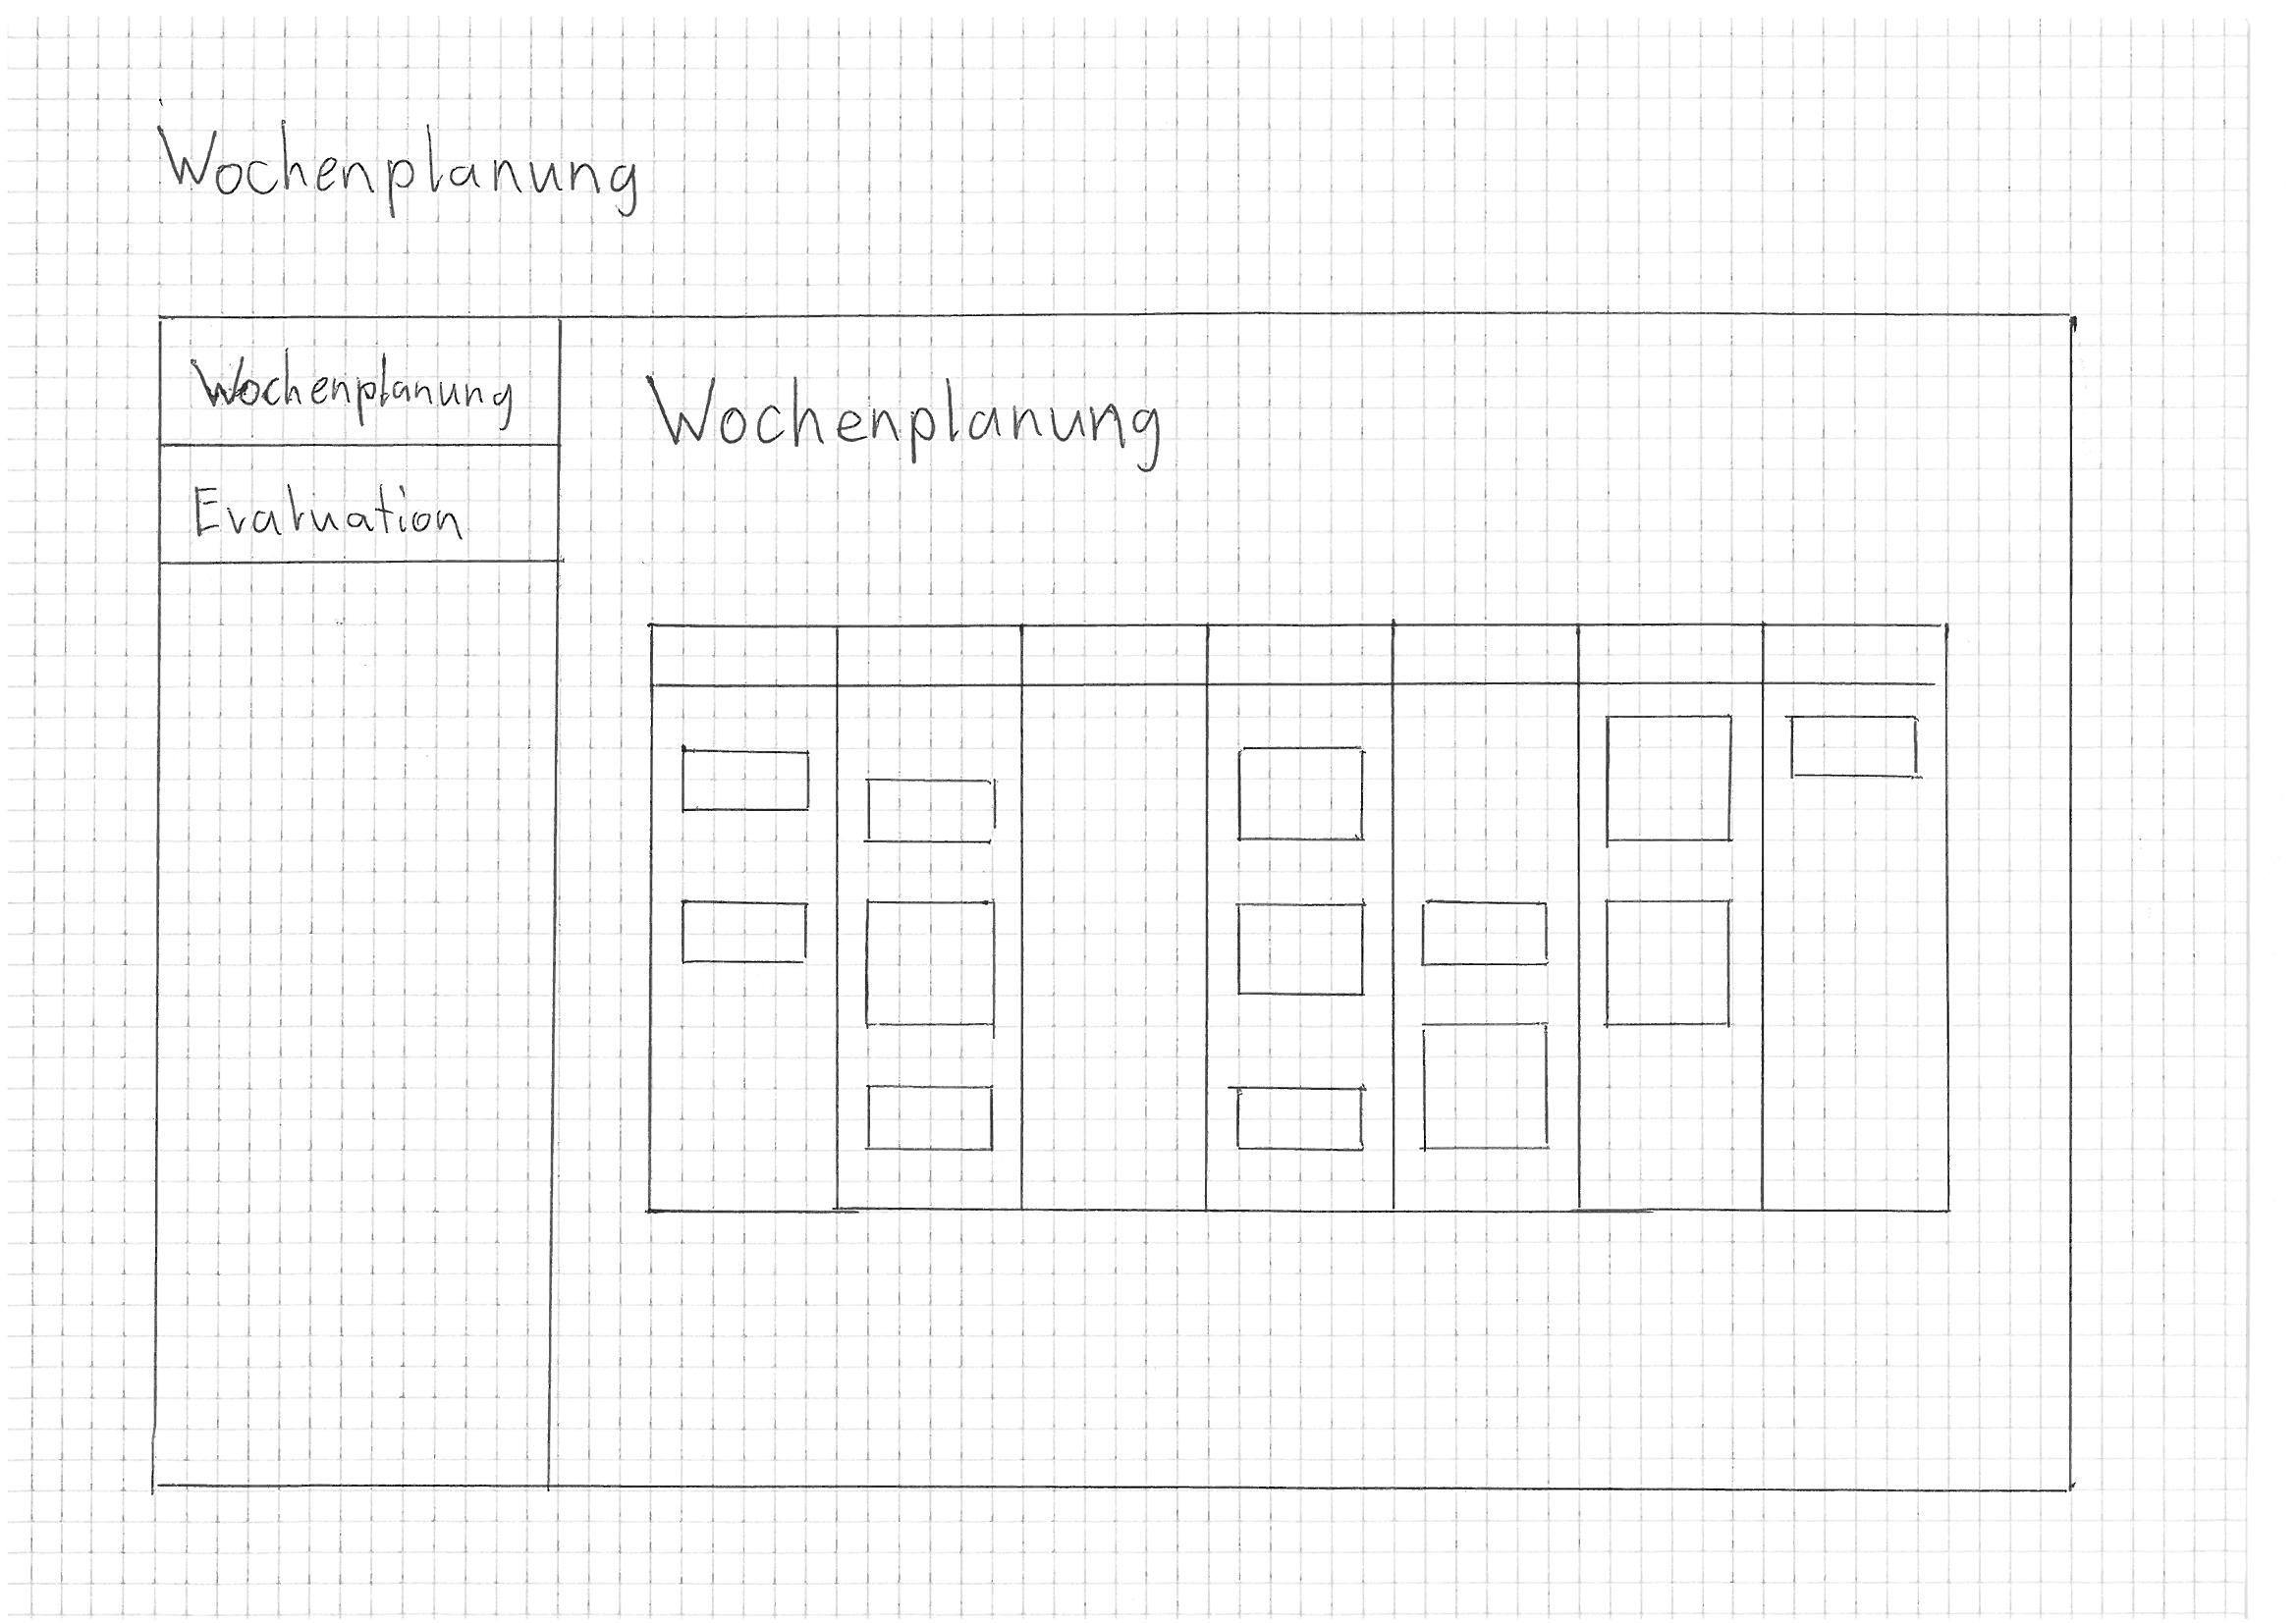 Wochenplanung
Wochenplanung
Evaluation
Wochenplanung